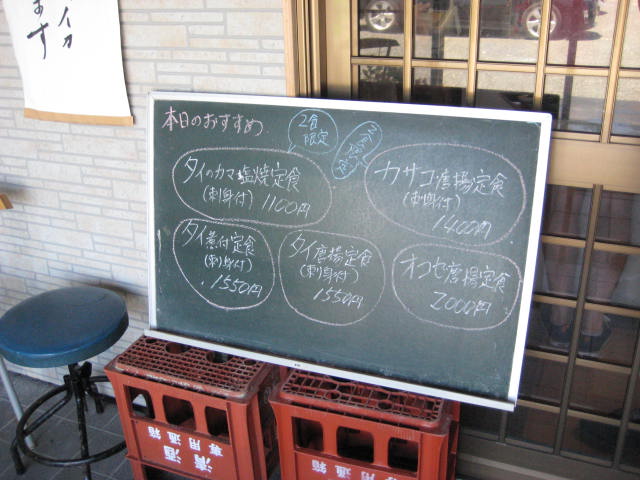 イカ
ます
本日のおすすめ
2食
限定
タイのカマ塩焼定食
(刺身付)
1100円
カサゴ唐揚定食
(刺身付)
1400円
タイ煮付定食
(刺身付)
1550円
タイ唐揚定食
(刺身付)
1550円
オコゼ唐揚定食
2000円
清酒
専用通箱
清酒
専用通箱